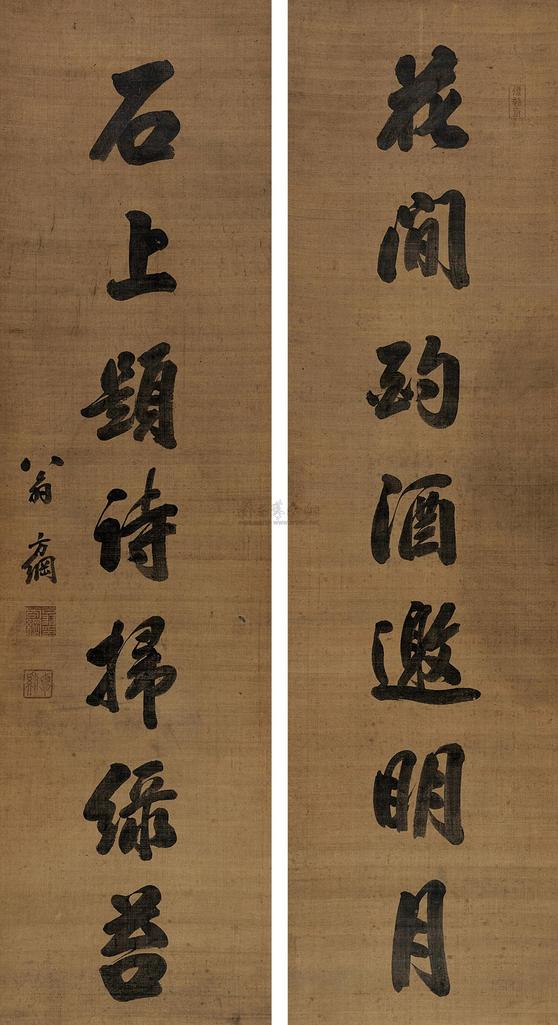 花間酌酒邀明月
石上題詩掃綠苔
翁方綱